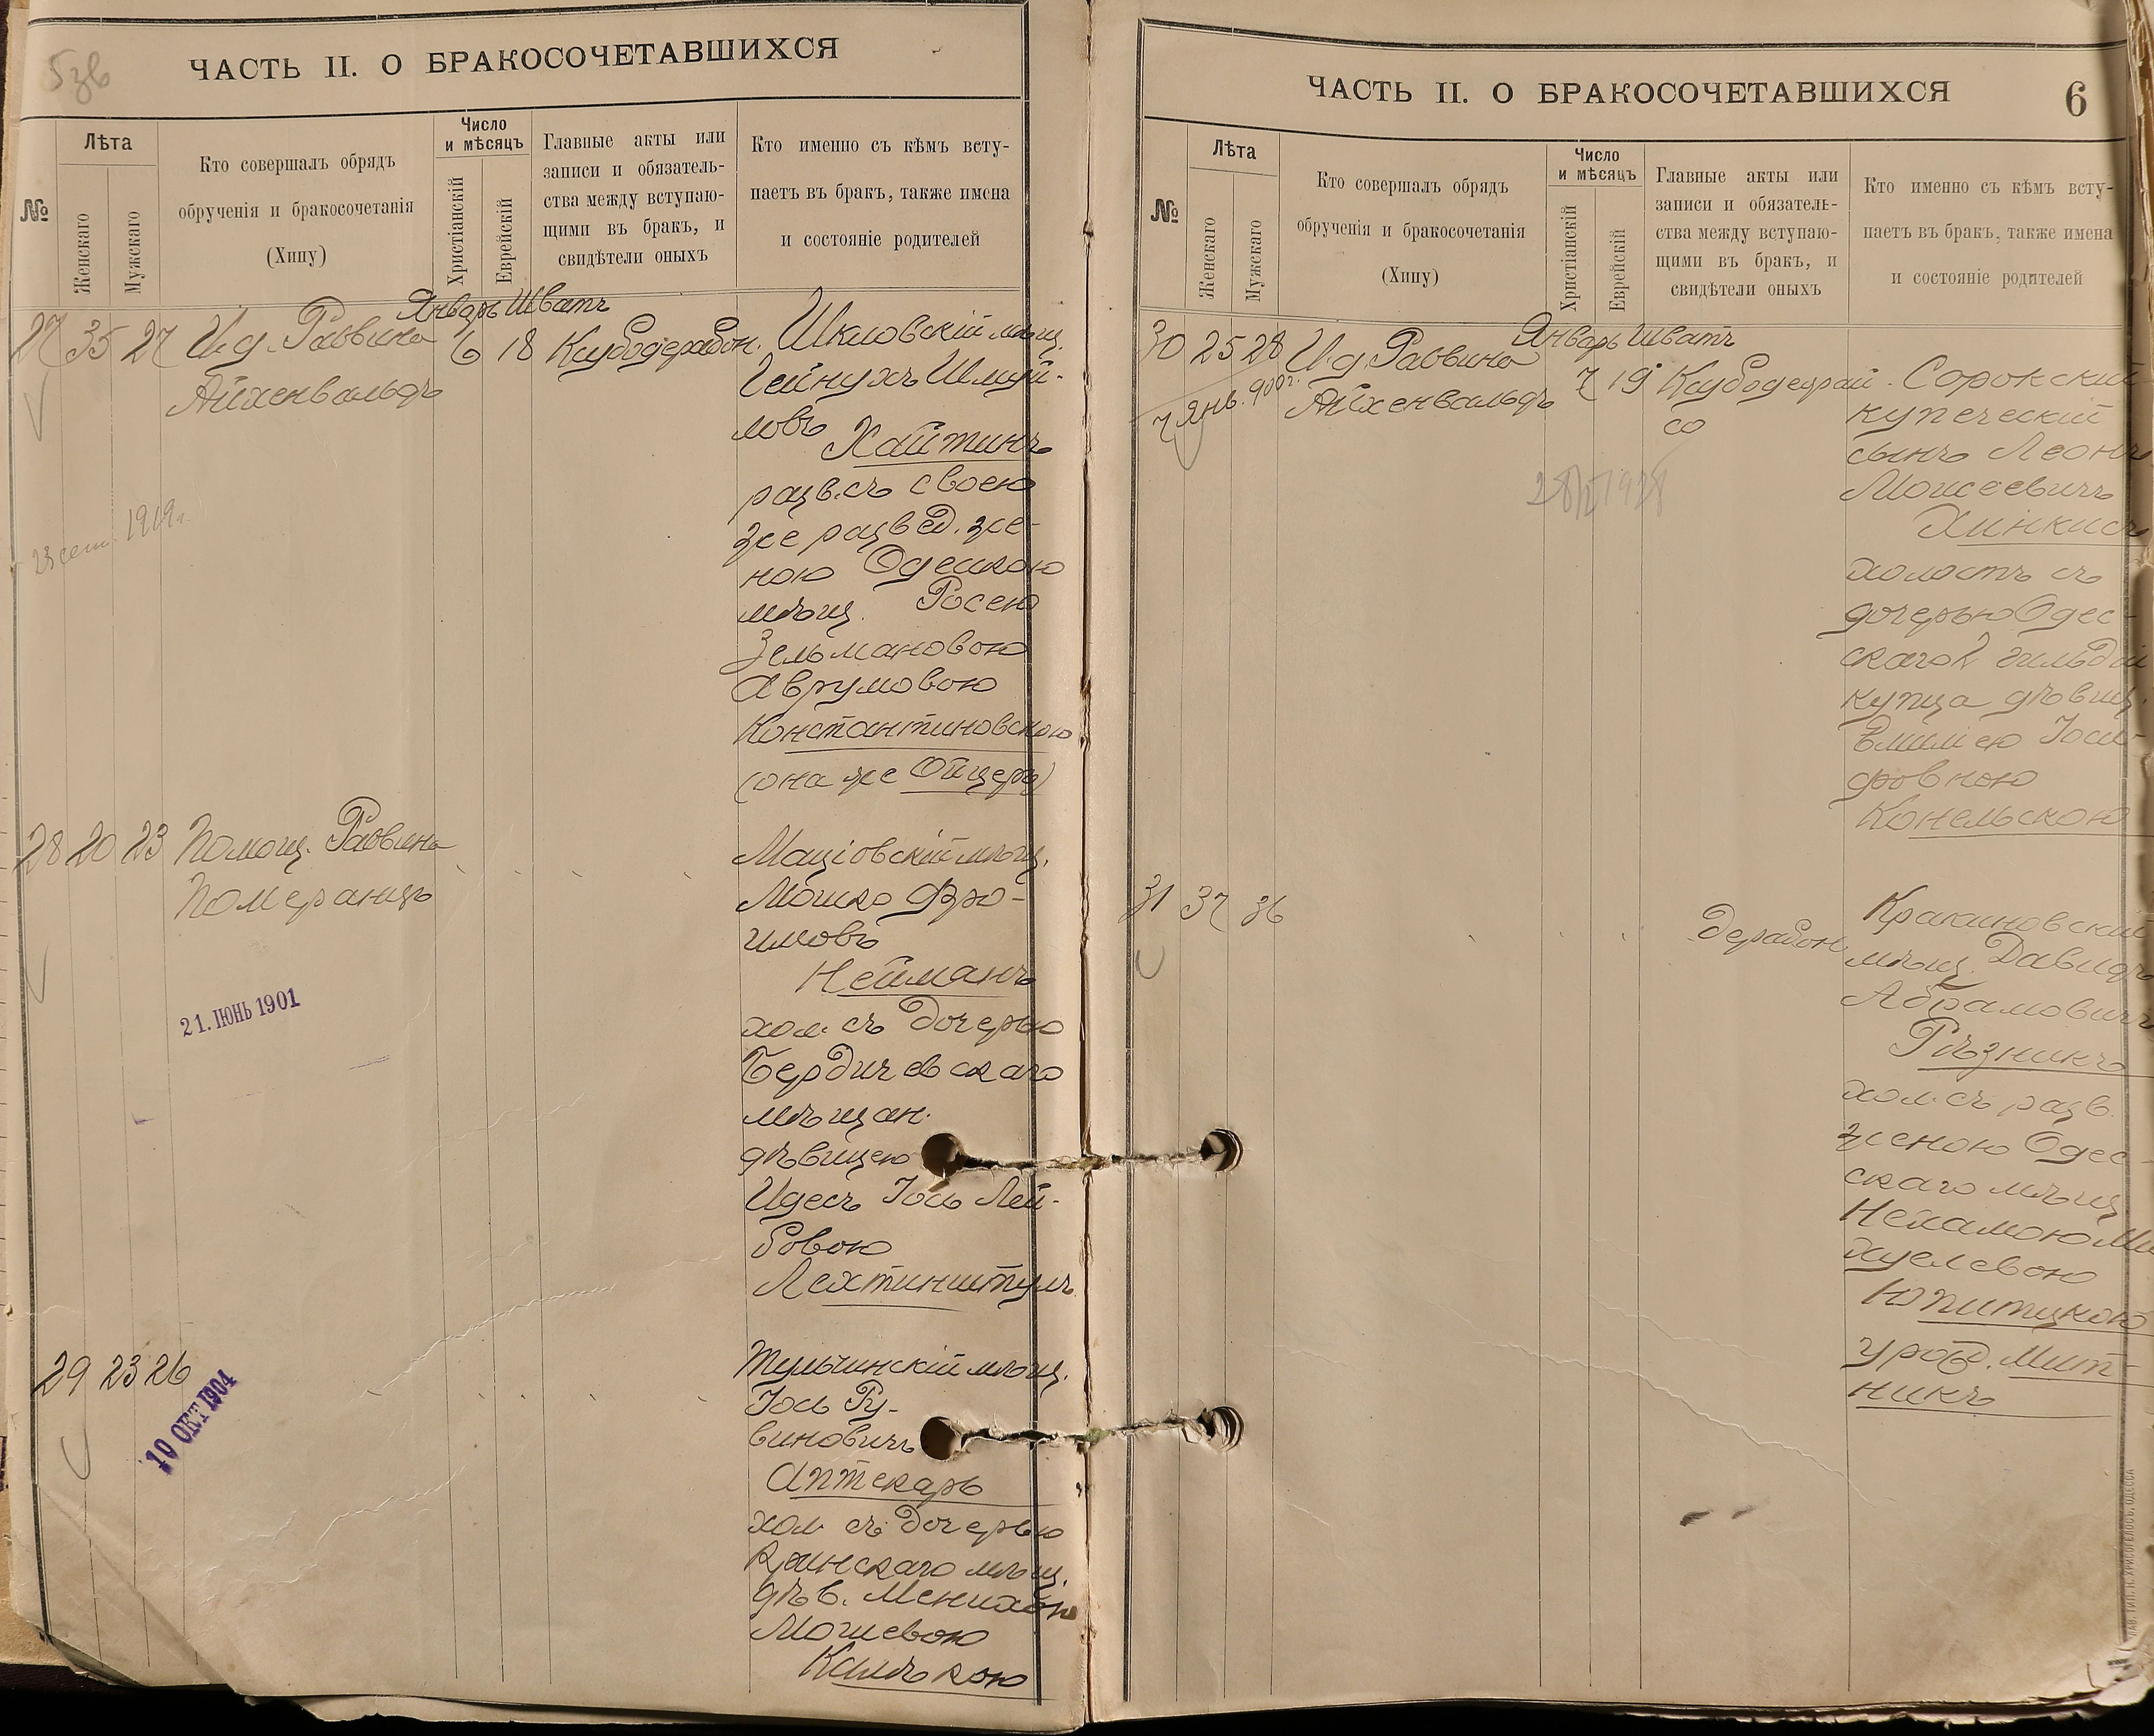 5 зв
ЧАСТЬ II. О БРАКОСОЧЕТАВШИХСЯ
№
Лѣта
Женскаго
Мужскаго
Кто совершалъ обрядъ
обрученія и бракосочетанія
(Хипу)
Число
и мѣсяцъ
Христіанскій
Еврейскій
Главные акты или
записи и обязатель-
ства между вступаю-
щими въ бракъ, и
свидѣтели оныхъ
Кто именно съ кѣмъ всту-
паетъ въ бракъ, также имена
и состояніе родителей
Январь Шватъ
27 35 27 И.д. Раввина 6 18
Айхенвальдъ
Шкловскій мѣщ.
Гейнухъ Шмуй-
ловъ
Хайтинъ
разв. съ своею
же развед. же-
ною Одескою
мѣщ. Росею
Зельмановою
Аврумовою
Константиновскою
(она же Ойцеръ)
23 сент. 1919 г.
28 20 23 Помощ. Раввина
Померанцъ
Маціовскій мѣщ.
Мошко Фро-
имовъ
Нейманъ
хол. съ дочерью
Бердичевскаго
мѣщан.
дѣвицею
Идесъ Іось Лей-
бовою
Лехтинштулъ
21. ІЮНЬ 1901
29 23 26
10 ОКТ 1904
Тульчинскій мѣщ.
Іось Ру-
виновичъ
Аптекарь
хол. съ дочерью
мѣщ.
дѣв.
Мошевою
ЧАСТЬ II. О БРАКОСОЧЕТАВШИХСЯ
6
№
Лѣта
Женскаго
Мужскаго
Кто совершалъ обрядъ
обрученія и бракосочетанія
(Хипу)
Число
и мѣсяцъ
Христіанскій
Еврейскій
Главные акты или
записи и обязатель-
ства между вступаю-
щими въ бракъ, и
свидѣтели оныхъ
Кто именно съ кѣмъ всту-
паетъ въ бракъ, также имена
и состояніе родителей
Январь Шватъ
30 25 28 И.д. Раввина 7 19
Айхенвальдъ
7 янв. 900 г.
со
Сорокскій
купеческій
сынъ Леонъ
Моисеевичъ
Хинкисъ
холостъ съ
дочерью Одес-
скаго 2 гильдіи
купца дѣвиц.
Эмиліею Іоси-
фовною
Конельскою
31 37 36
Дерабон
Кракиновскій
мѣщ. Давидъ
Абрамовичъ
Рѣзникъ
хол. съ разв.
женою Одес-
скаго мѣщ.
Нехамою Ми-
хуелевою
Юпитцкою
урожд. Мит-
никъ